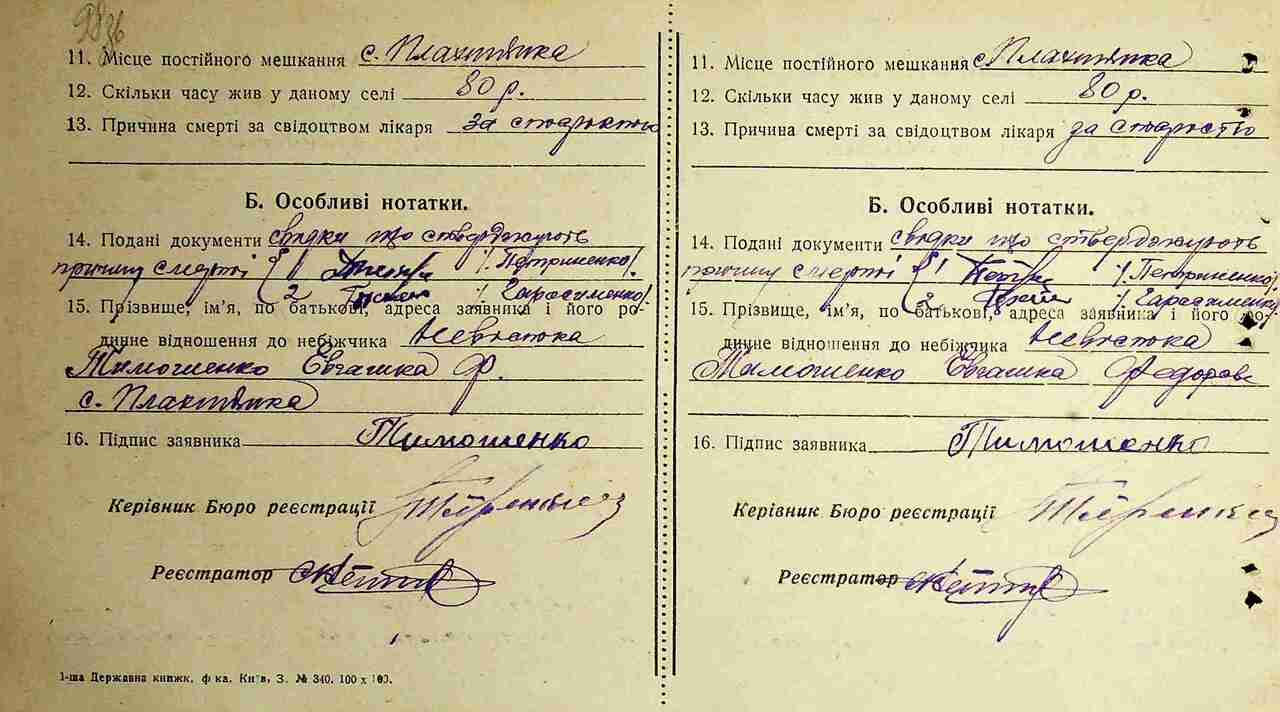 11. Місце постійного мешкання с. Плахтянка
12. Скільки часу жив у даному селі 80 р.
13. Причина смерті за свідоцтвом лікаря за старостю
Б. Особливі нотатки.
14. Подані документи свідки що стверджують
причину смерті 1 /Петриненко/
2 /Гарасименко/
15. Прізвище, ім'я, по батькові, адреса заявника і його ро-
динне відношення до небіжчика Невістока
Тимошенко Євгашка Ф.
с. Плахтянка
16. Підпис заявника Тимошенко
Керівник Бюро реєстрації
Реєстратор
1-ша Державна книжк. ф-ка. Київ, З. № 340. 100 x 100.
11. Місце постійного мешкання с. Плахтянка
12. Скільки часу жив у даному селі 80 р.
13. Причина смерті за свідоцтвом лікаря за старостю
Б. Особливі нотатки.
14. Подані документи свідки що стверджують
причину смерті 1 /Петриненко/
2 /Гарасименко/
15. Прізвище, ім'я, по батькові, адреса заявника і його ро-
динне відношення до небіжчика Невістока
Тимошенко Євгашка Федоров
16. Підпис заявника Тимошенко
Керівник Бюро реєстрації
Реєстратор